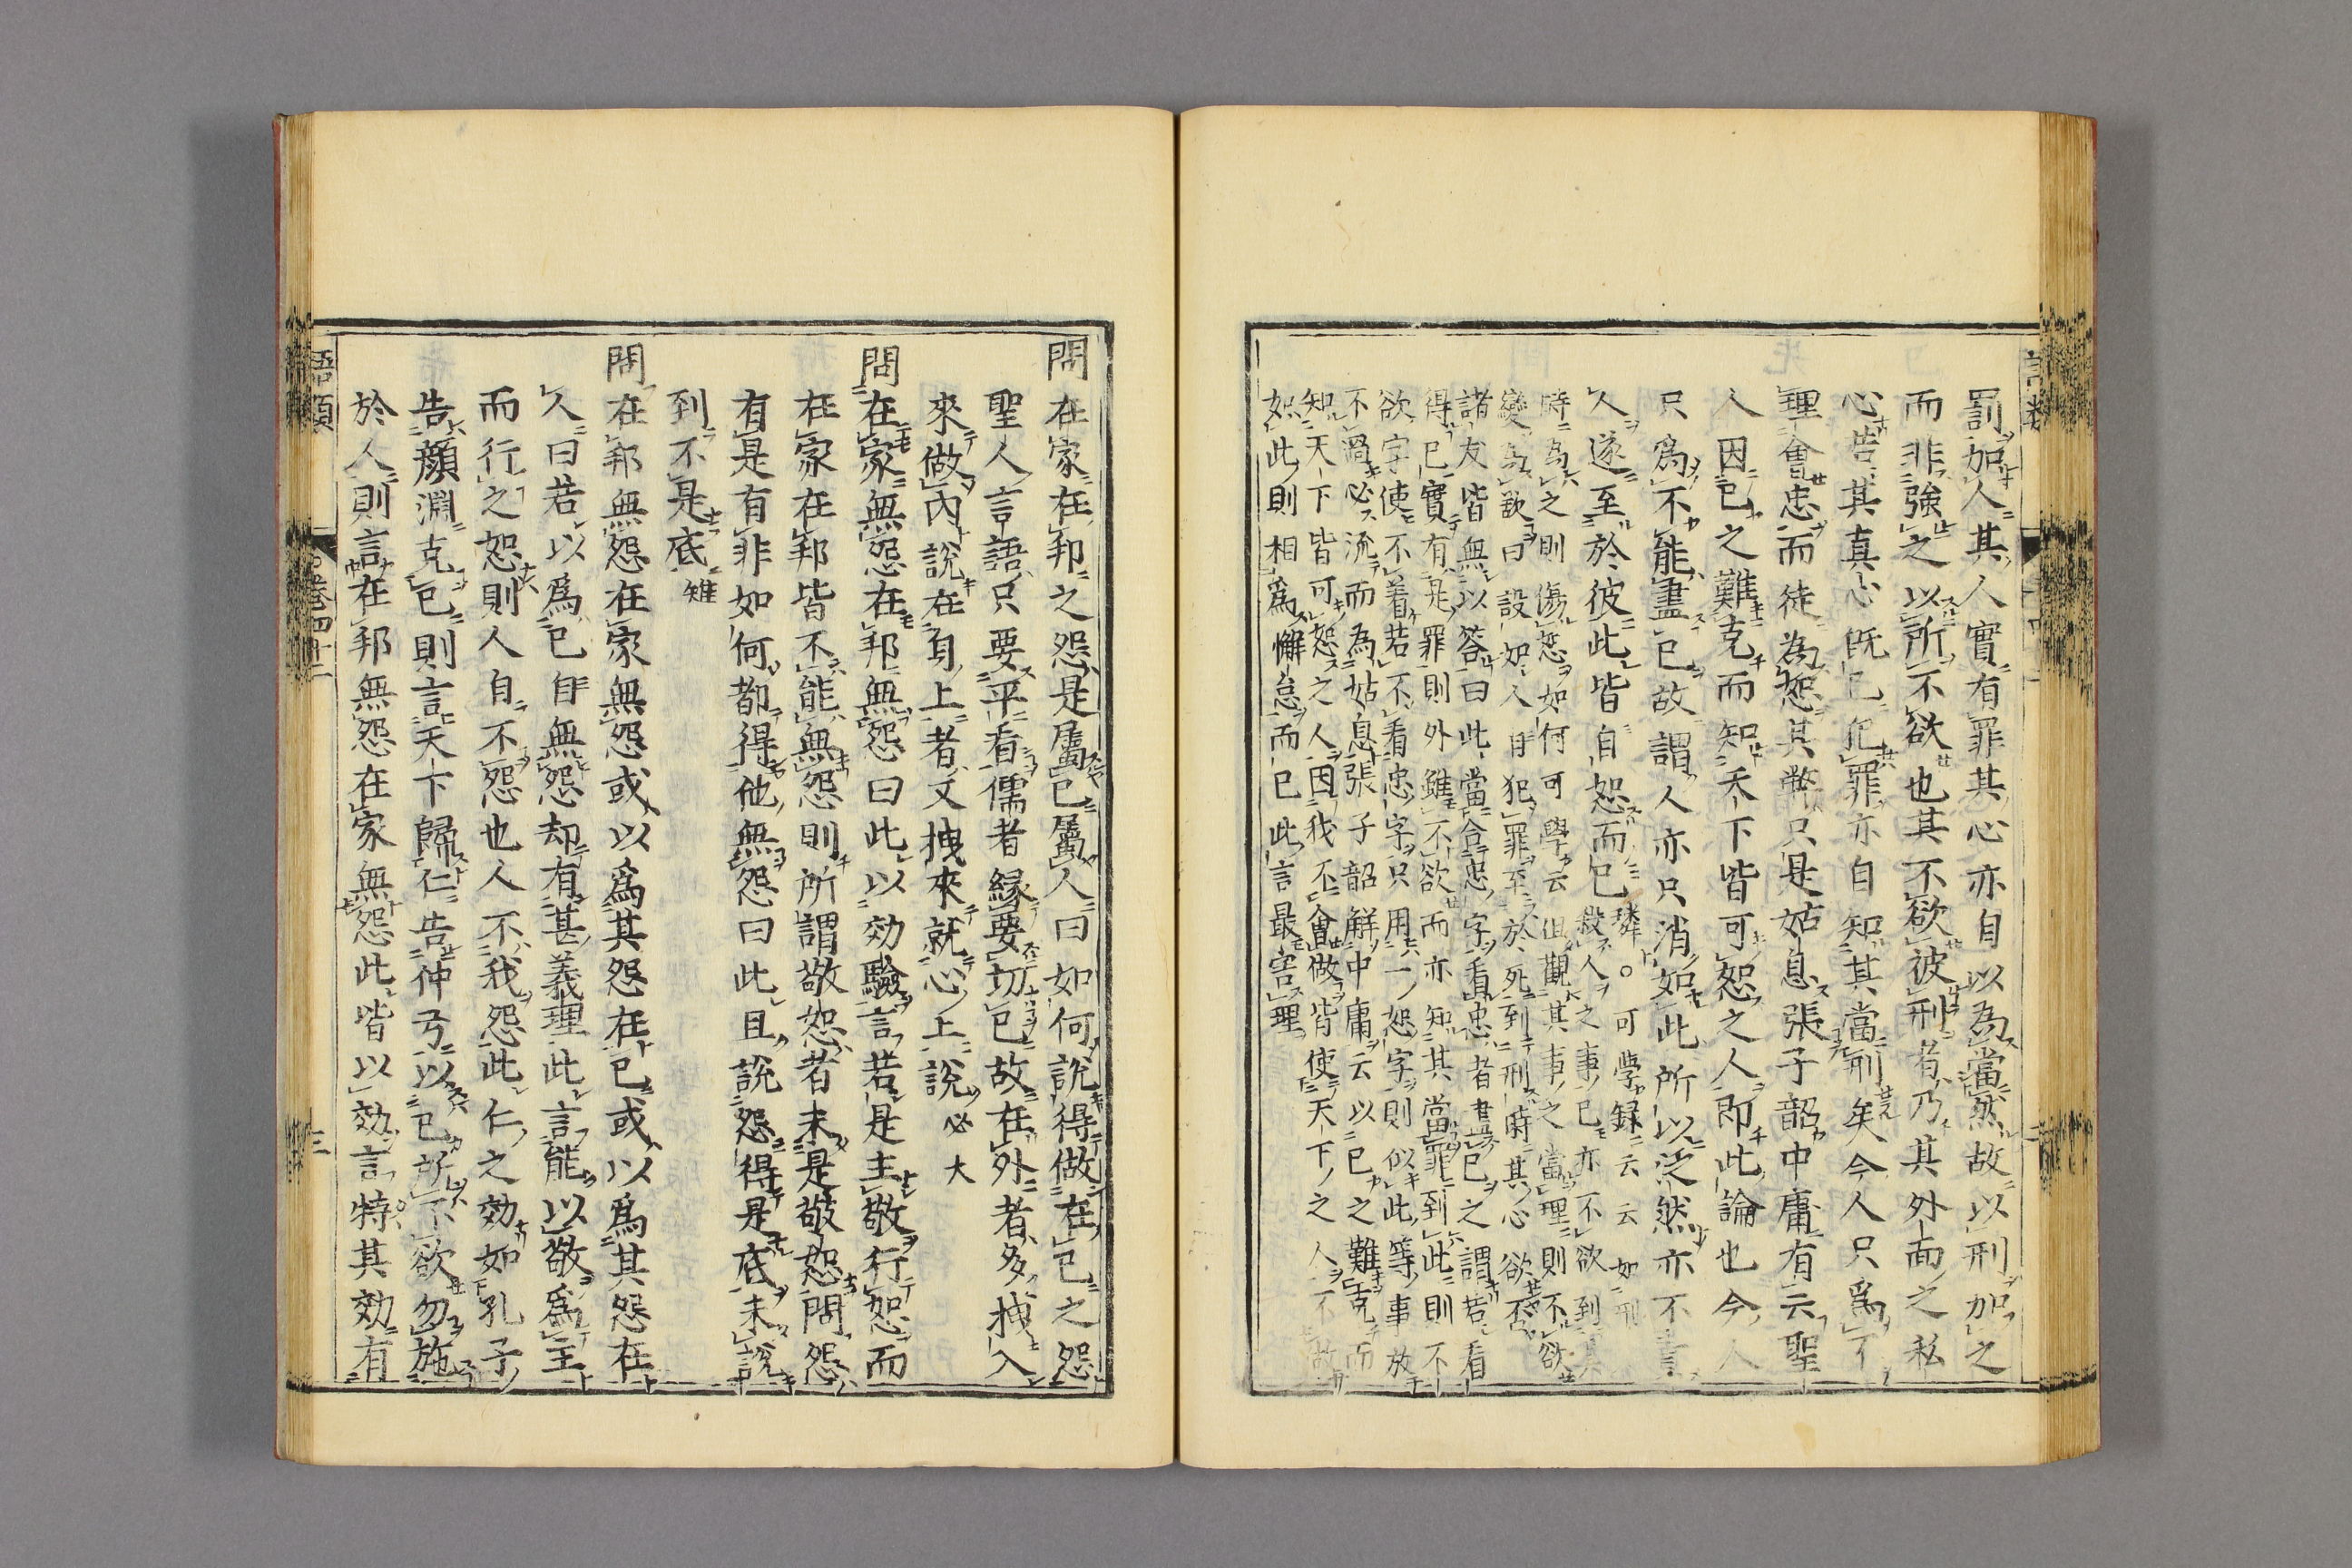 罰加人其人實有罪其心亦自以為當然故以刑加之
而非強之以所不欲也其不欲被刑者乃其外面之私
心若其真心既已犯罪亦自知其當刑矣今人只爲不
理會忠而徒為恕其弊只是姑息張子韶中庸有云聖
人因己之難克而知天下皆可恕之人即此論也今人
只爲不能盡己故謂人亦只消如此所以泛然亦不責
人遂至於彼此皆自恕而已璘○可學録云云如刑
殺人之事己亦不欲到其
時為之則傷恕如何可學云但觀其事之當理則不欲
變為欲曰設如人自犯罪至於死到刑時其心欲否
諸友皆無以答曰此當合忠字看忠者盡己之謂若看
得己實有是罪則外雖不欲而亦知其當罪到此則不
欲字使不着若不看忠字只用一恕字則似此等事放
不過必流而為姑息張子韶解中庸云以己之難克而
知天下皆可恕之人因我不會做皆使天下之人不做
如此則相爲懈怠而已此言最害理
問在家在邦之怨是屬己屬人曰如何說得做在己之怨
聖人言語只要平看儒者緣要切己故在外者多拽入
來做內說在身上者又拽來就心上說必大
問在家無怨在邦無怨曰此以効驗言若是主敬行恕而
在家在邦皆不能無怨則所謂敬恕者未是敬恕問怨
有是有非如何都得他無怨曰此且說怨得是底未說
到不是底雉
問在邦無怨在家無怨或以爲其怨在己或以爲其怨在
人曰若以爲己自無怨却有甚義理此言能以敬爲主
而行之恕則人自不怨也人不我怨此仁之効如孔子
告顔淵克己則言天下歸仁告仲弓以己所不欲勿施
於人則言在邦無怨在家無怨此皆以効言特其効有
語類
卷四十二
三